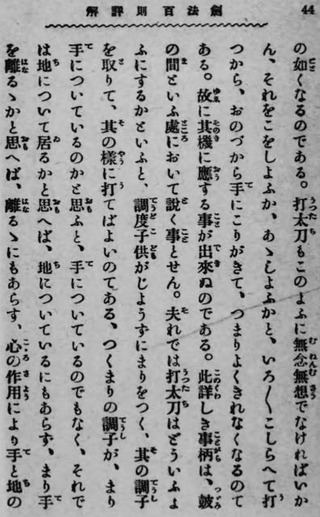 44
劍法百則評解
の如くなるのである。打太刀もこのよふに無念無想でなければいか
ん、それをこをしよふか、あゝしよふかと、いろ〳〵こしらへて打
つから、おのづから手にこりがきて、つまりよくきれなくなるので
ある。故に其機に應する事が出來ぬのである。此詳しき事柄は、皷
の間といふ處において說く事とせん。夫れでは打太刀はどういふよ
ふにするかといふと、調度子供がじようずにまりをつく、其の調子
を取りて、其の樣に打てばよいのである、つくまりの調子が、まり
手についているのかと思ふと、手についているのでもなく、それで
は地について居るかと思へば、地についているにもあらず、まり手
を離るゝかと思へば、離るゝにもあらず、心の作用により手と地の